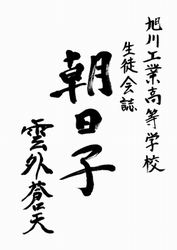 旭川工業高等学校
生徒会誌
朝日子
雲外蒼天